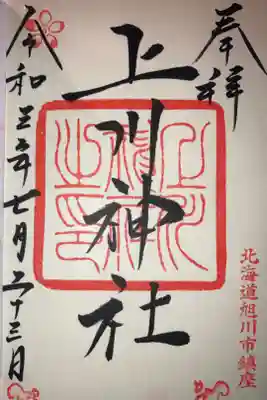 奉拝
北海道旭川市鎮座
上川神社
上川神社之印
令和三年七月二十三日